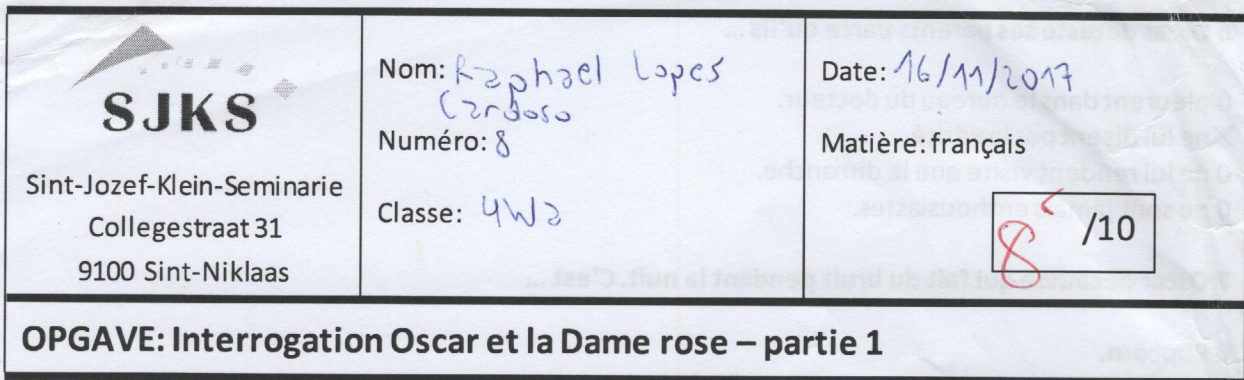 SJKS
Sint-Jozef-Klein-Seminarie
Collegestraat 31
9100 Sint-Niklaas
Nom: Raphael Lopes
Cardoso
Numéro: 8
Classe: 4Wa
Date: 16/11/2017
Matière: français
8 /10
OPGAVE: Interrogation Oscar et la Dame rose – partie 1